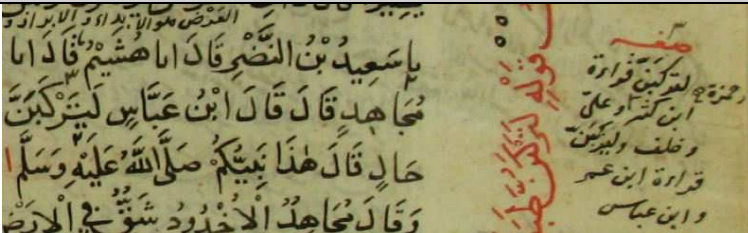 العرض هو الا
نا سعيد بن النضر قال انا هشيم قال انا
مجاهد قال قال ابن عباس لتركبن
حال قال هذا نبيكم صلى الله عليه وسلم
وقال مجاهد الاخدود شق في الارض
قوله لتركبن طبقا
لتركبن قراءة
ابن كثير وحمزة وعلي
وخلف وليركبن
قراءة ابن عمر
وابن عباس